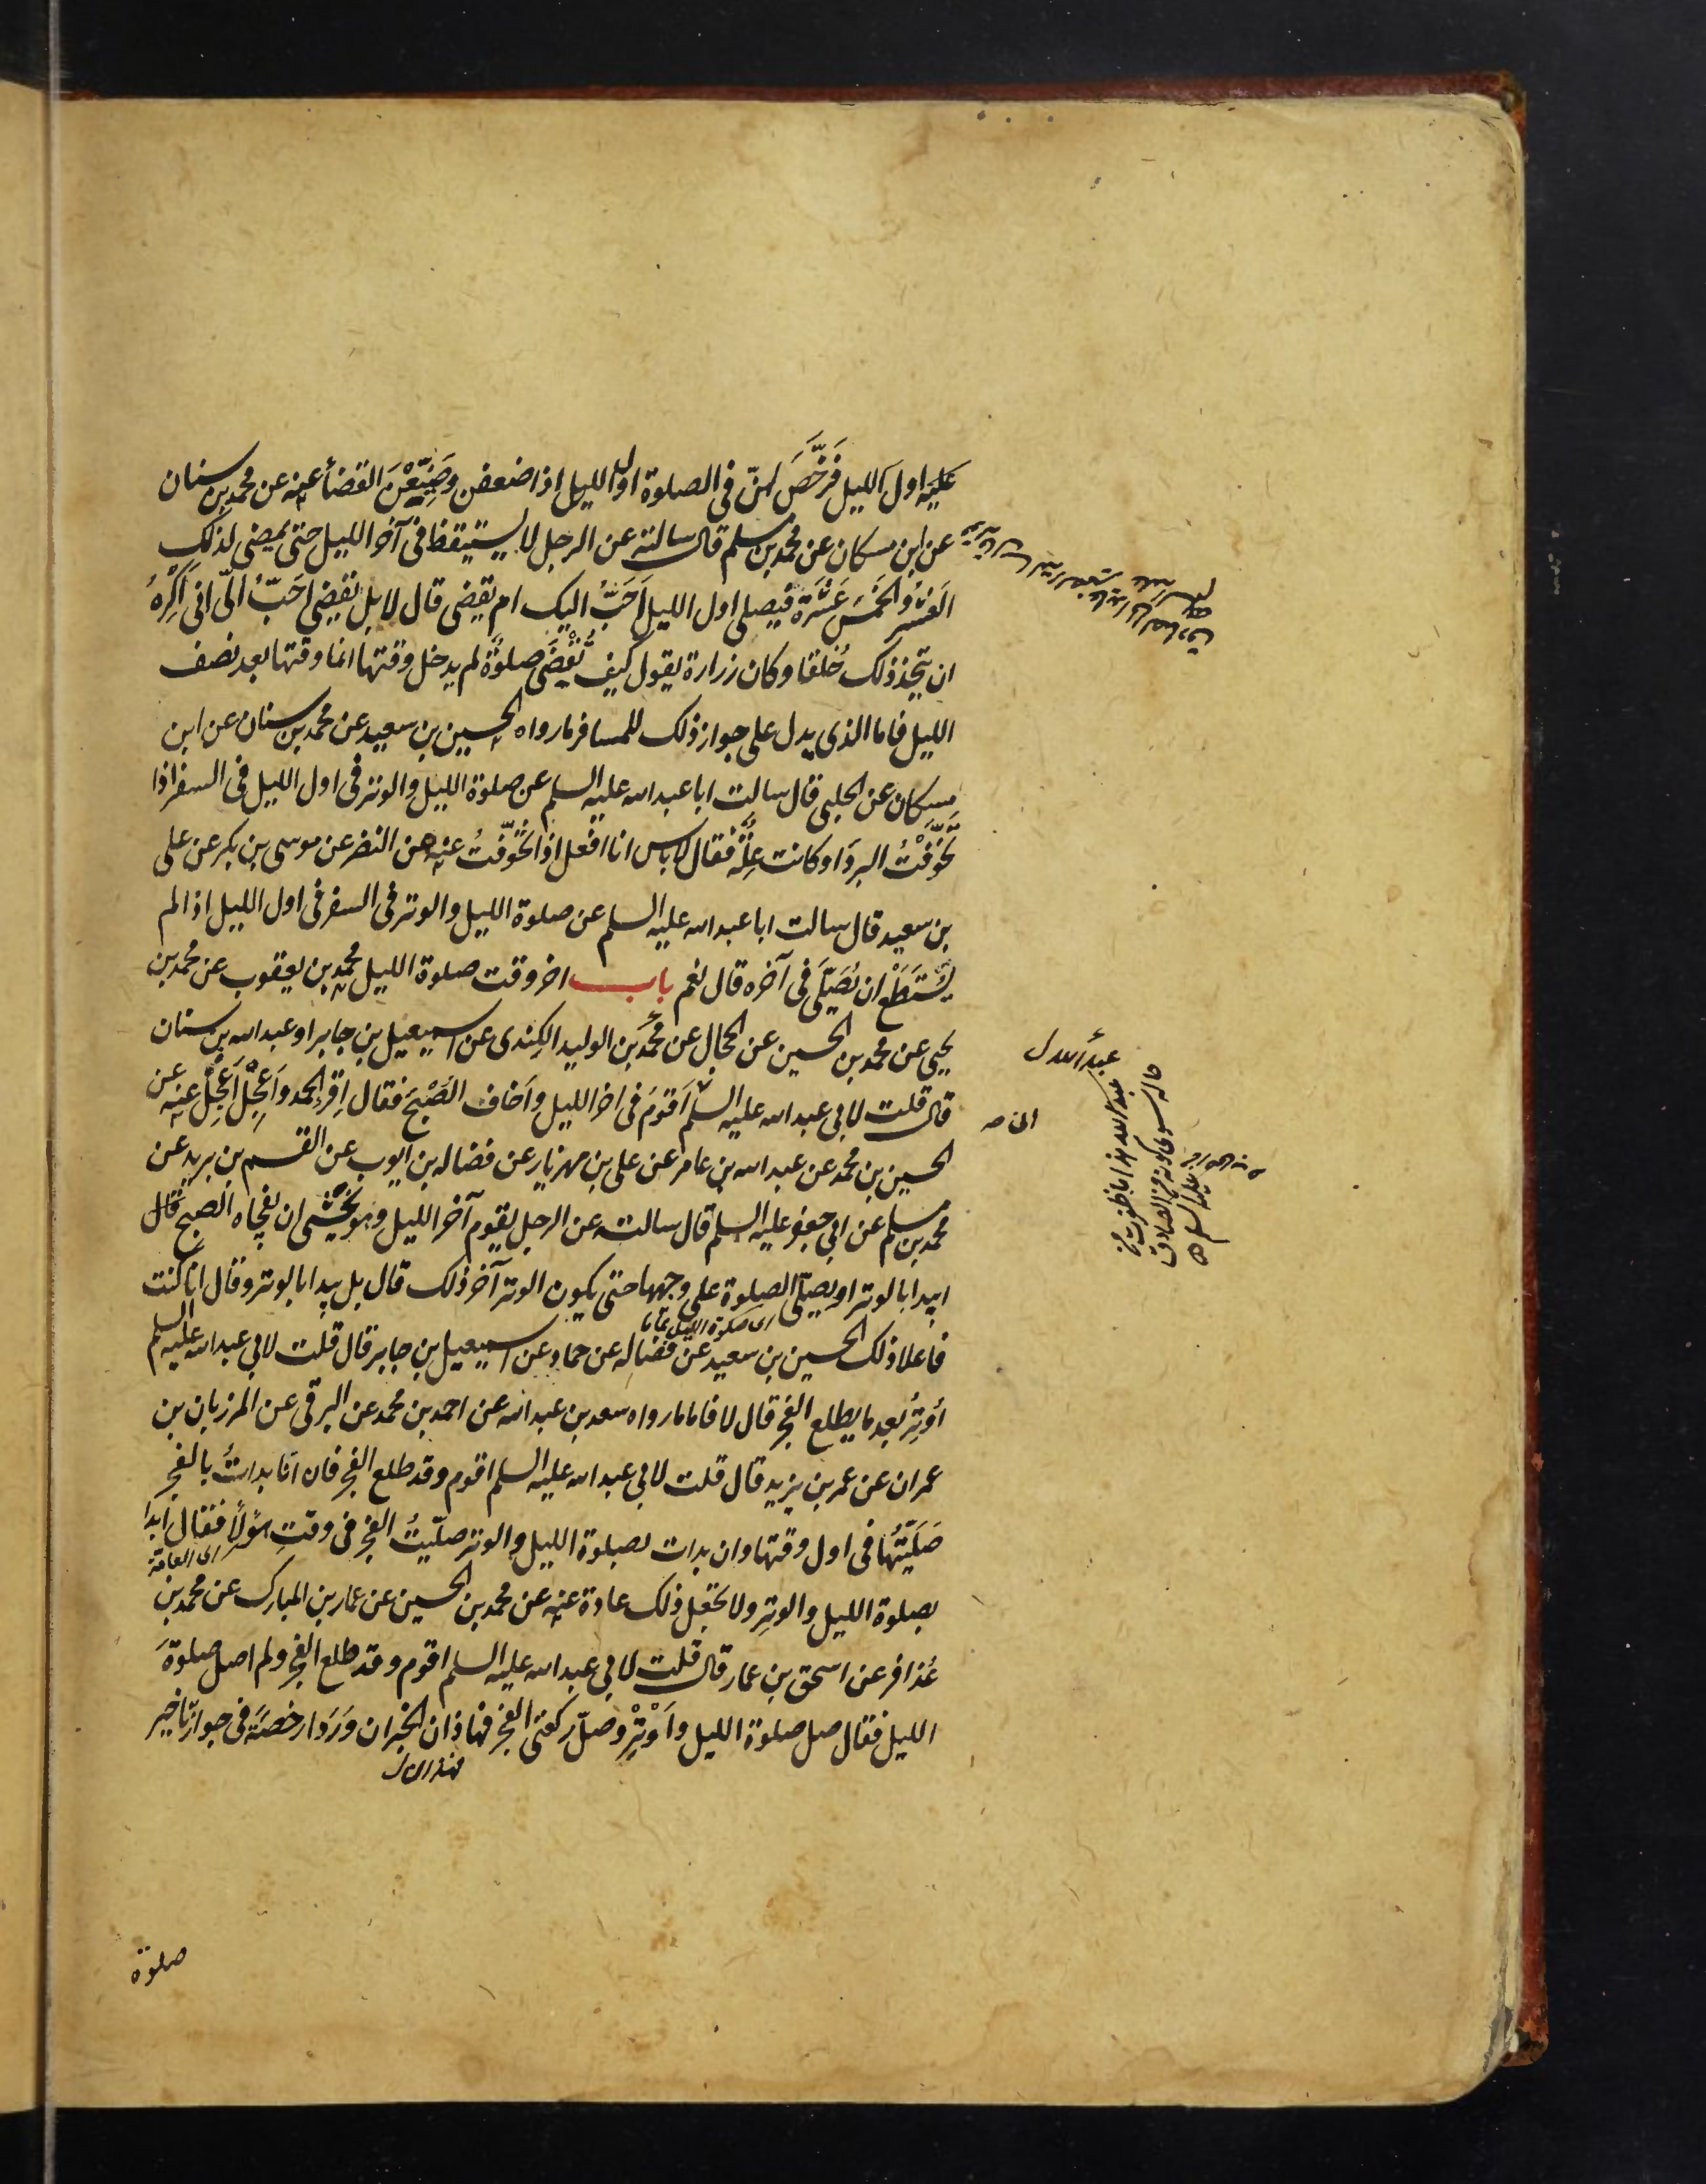 عليه اول الليل فَرَخَّصَ لهنّ في الصلوة اول الليل اذا ضعفن وضَيَّعْنَ القضاء عنه عن محمد بن سنان
عن ابن مسكان عن محمد بن مسلم قال سالته عن الرجل لا يستيقظ في آخر الليل حتى يمضي لذلك
العَشْر والخَمْسَ عَشْرَةَ فيصلي اول الليل اَحَبُّ اليك ام يقضي قال لا بل يقضي احَبُّ الىّ اني اكرهُ
ان يتخذ ذلك خُلقا وكان زرارة يقول كيف تُقْضَى صلوةٌ لم يدخل وقتها انما وقتها بعد نصف
الليل فاما الذي يدل على جواز ذلك للمسافر ما رواه الحسين بن سعيد عن محمد بن سنان عن ابن
مسكان عن الحلبي قال سالت ابا عبد الله عليه السلم عن صلوة الليل والوتر في اول الليل في السفر اذا
تَخَوَّفْتُ البردَ او كانت عِلّة فقال لا باس انا افعل اذا تخوّفتُ عنه عن النضر عن موسى بن بكر عن على
بن سعيد قال سالت ابا عبد الله عليه السلم عن صلوة الليل والوتر في السفر في اول الليل اذا لم
يَسْتَطِعْ ان يُصَلّيَ في آخره قال نعم باب اخر وقت صلوة الليل محمد بن يعقوب عن محمد بن
يحيى عن محمد بن الحسين عن الحجال عن محمد بن الوليد الكِندى عن اسمعيل بن جابر او عبد الله بن سنان
قال قلت لابي عبد الله عليه السلم اَقومَ في اخر الليل واَخاف الصُبْحَ فقال اِقرَ الحمد واَعجِلْ اَعجِلْ عنه عن
الحسين بن محمد عن عبد الله بن عامر عن على بن مهزيار عن فضاله بن ايوب عن القسم بن بريد عن
محمد بن مسلم عن ابي جعفر عليه السلم قال سالت عن الرجل يقوم آخر الليل وهو يَخْشى ان يفجاه الصبح قال
ايبدا بالوتر او يصلّي الصلوة على وجهها حتى يكون الوتر آخر ذلك قال بل يبدا بالوتر وقال انا كنت
اى صلوة الليل تماما
فاعلا ذلك الحسين بن سعيد عن فضاله عن حماد عن اسمعيل بن جابر قال قلت لابي عبد الله عليه السلم
اُوتِرُ بعد ما يطلع الفجر قال لا فاما ما رواه سعد بن عبد الله عن احمد بن محمد عن البرقى عن المرزبان بن
عمران عن عمر بن يزيد قال قلت لابي عبد الله عليه السلم اقوم وقد طلع الفجر فان انا بداتُ بالفجر
صَلّيْتُها في اول وقتها وان بدات بصلوة الليل والوتر صلّيتُ الفجر في وقتِ هؤلاء فقال ابدا
اى العامّة
بصلوة الليل والوتِر ولا تجعل ذلك عادة عنه عن محمد بن الحسين عن عمار بن المبارك عن محمد بن
عُذافر عن اسحق بن عمار قال قلت لابي عبد الله عليه السلم اقوم وقد طلع الفجر ولم اصل صلوةَ
الليل فقال صل صلوة الليل واَوْتِرْ وصلّ ركعتي الفجر فهاذان الخبران وَرَدا رخصَةً في جواز تاخير
فهذان ل
عبدُ الله ل
صلوة